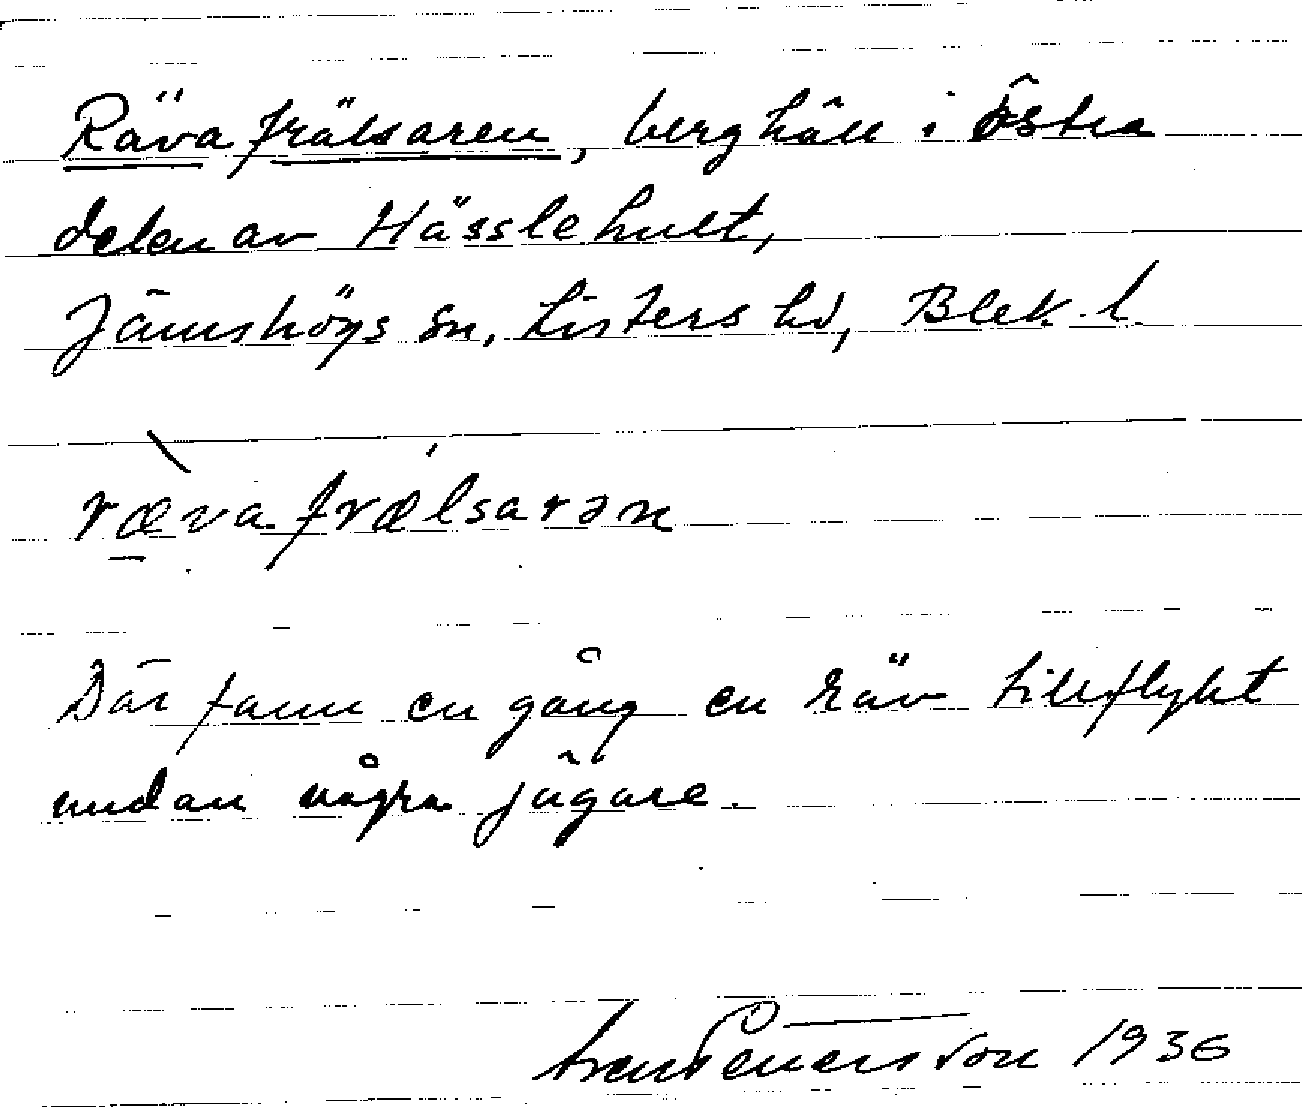 Rävafrälsaren, berghäll i östra
delen av Hässlehult,
Jämshögs sn, Listers hd, Blek. l.
rævafrælsarən
Där fann en gång en räv tillflykt
undan några jägare.
Sven Benensson 1936